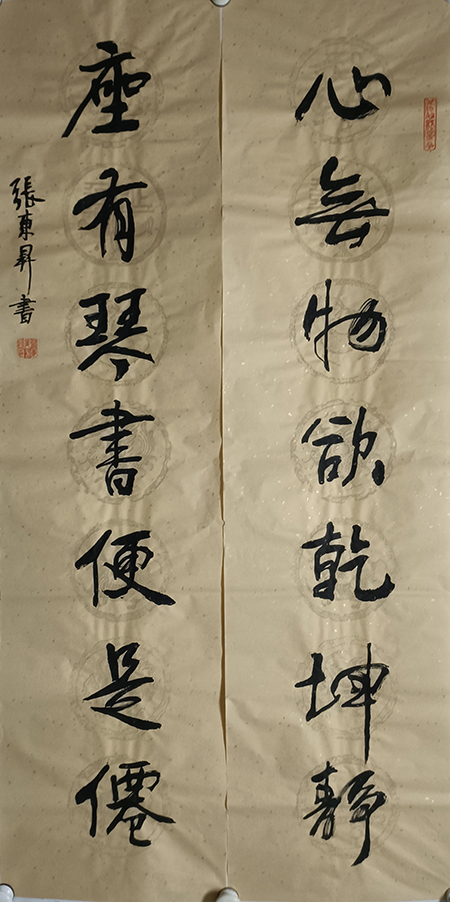 心無物欲乾坤靜
座有琴書便是僊
張東昇書